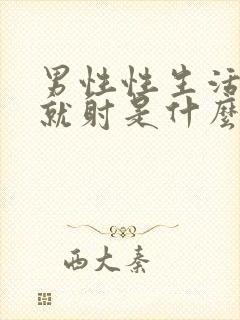 男性性生活
就射是什麼
西大秦